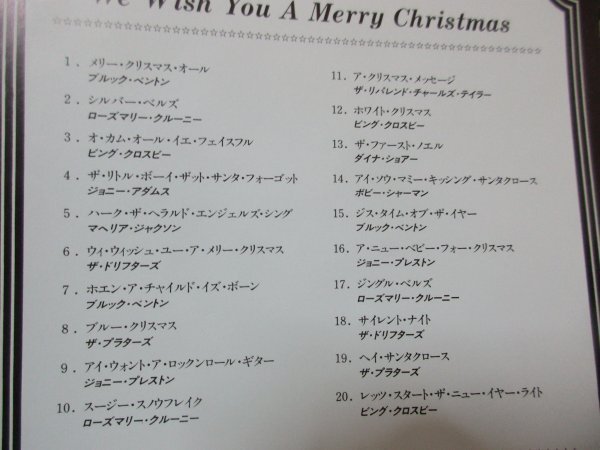 We Wish You A Merry Christmas
☆☆☆☆☆☆☆☆☆☆☆☆☆☆☆☆☆☆☆☆☆☆☆☆☆☆☆☆☆☆
1. メリー・クリスマス・オール
ブルック・ベントン
2. シルバー・ベルズ
ローズマリー・クルーニー
3. オ・カム・オール・イエ・フェイスフル
ビング・クロスビー
4. ザ・リトル・ボーイ・ザット・サンタ・フォーゴット
ジョニー・アダムス
5. ハーク・ザ・ヘラルド・エンジェルズ・シング
マヘリア・ジャクソン
6. ウィ・ウィッシュ・ユー・ア・メリー・クリスマス
ザ・ドリフターズ
7. ホエン・ア・チャイルド・イズ・ボーン
ブルック・ベントン
8. ブルー・クリスマス
ザ・プラターズ
9. アイ・ウォント・ア・ロックンロール・ギター
ジョニー・プレストン
10. スージー・スノウフレイク
ローズマリー・クルーニー
11. ア・クリスマス・メッセージ
ザ・リバレンド・チャールズ・テイラー
12. ホワイト・クリスマス
ビング・クロスビー
13. ザ・ファースト・ノエル
ダイナ・ショアー
14. アイ・ソウ・マミー・キッシング・サンタクロース
ボビー・シャーマン
15. ジス・タイム・オブ・ザ・イヤー
ブルック・ベントン
16. ア・ニュー・ベビー・フォー・クリスマス
ジョニー・プレストン
17. ジングル・ベルズ
ローズマリー・クルーニー
18. サイレント・ナイト
ザ・ドリフターズ
19. ヘイ・サンタクロース
ザ・プラターズ
20. レッツ・スタート・ザ・ニュー・イヤー・ライト
ビング・クロスビー